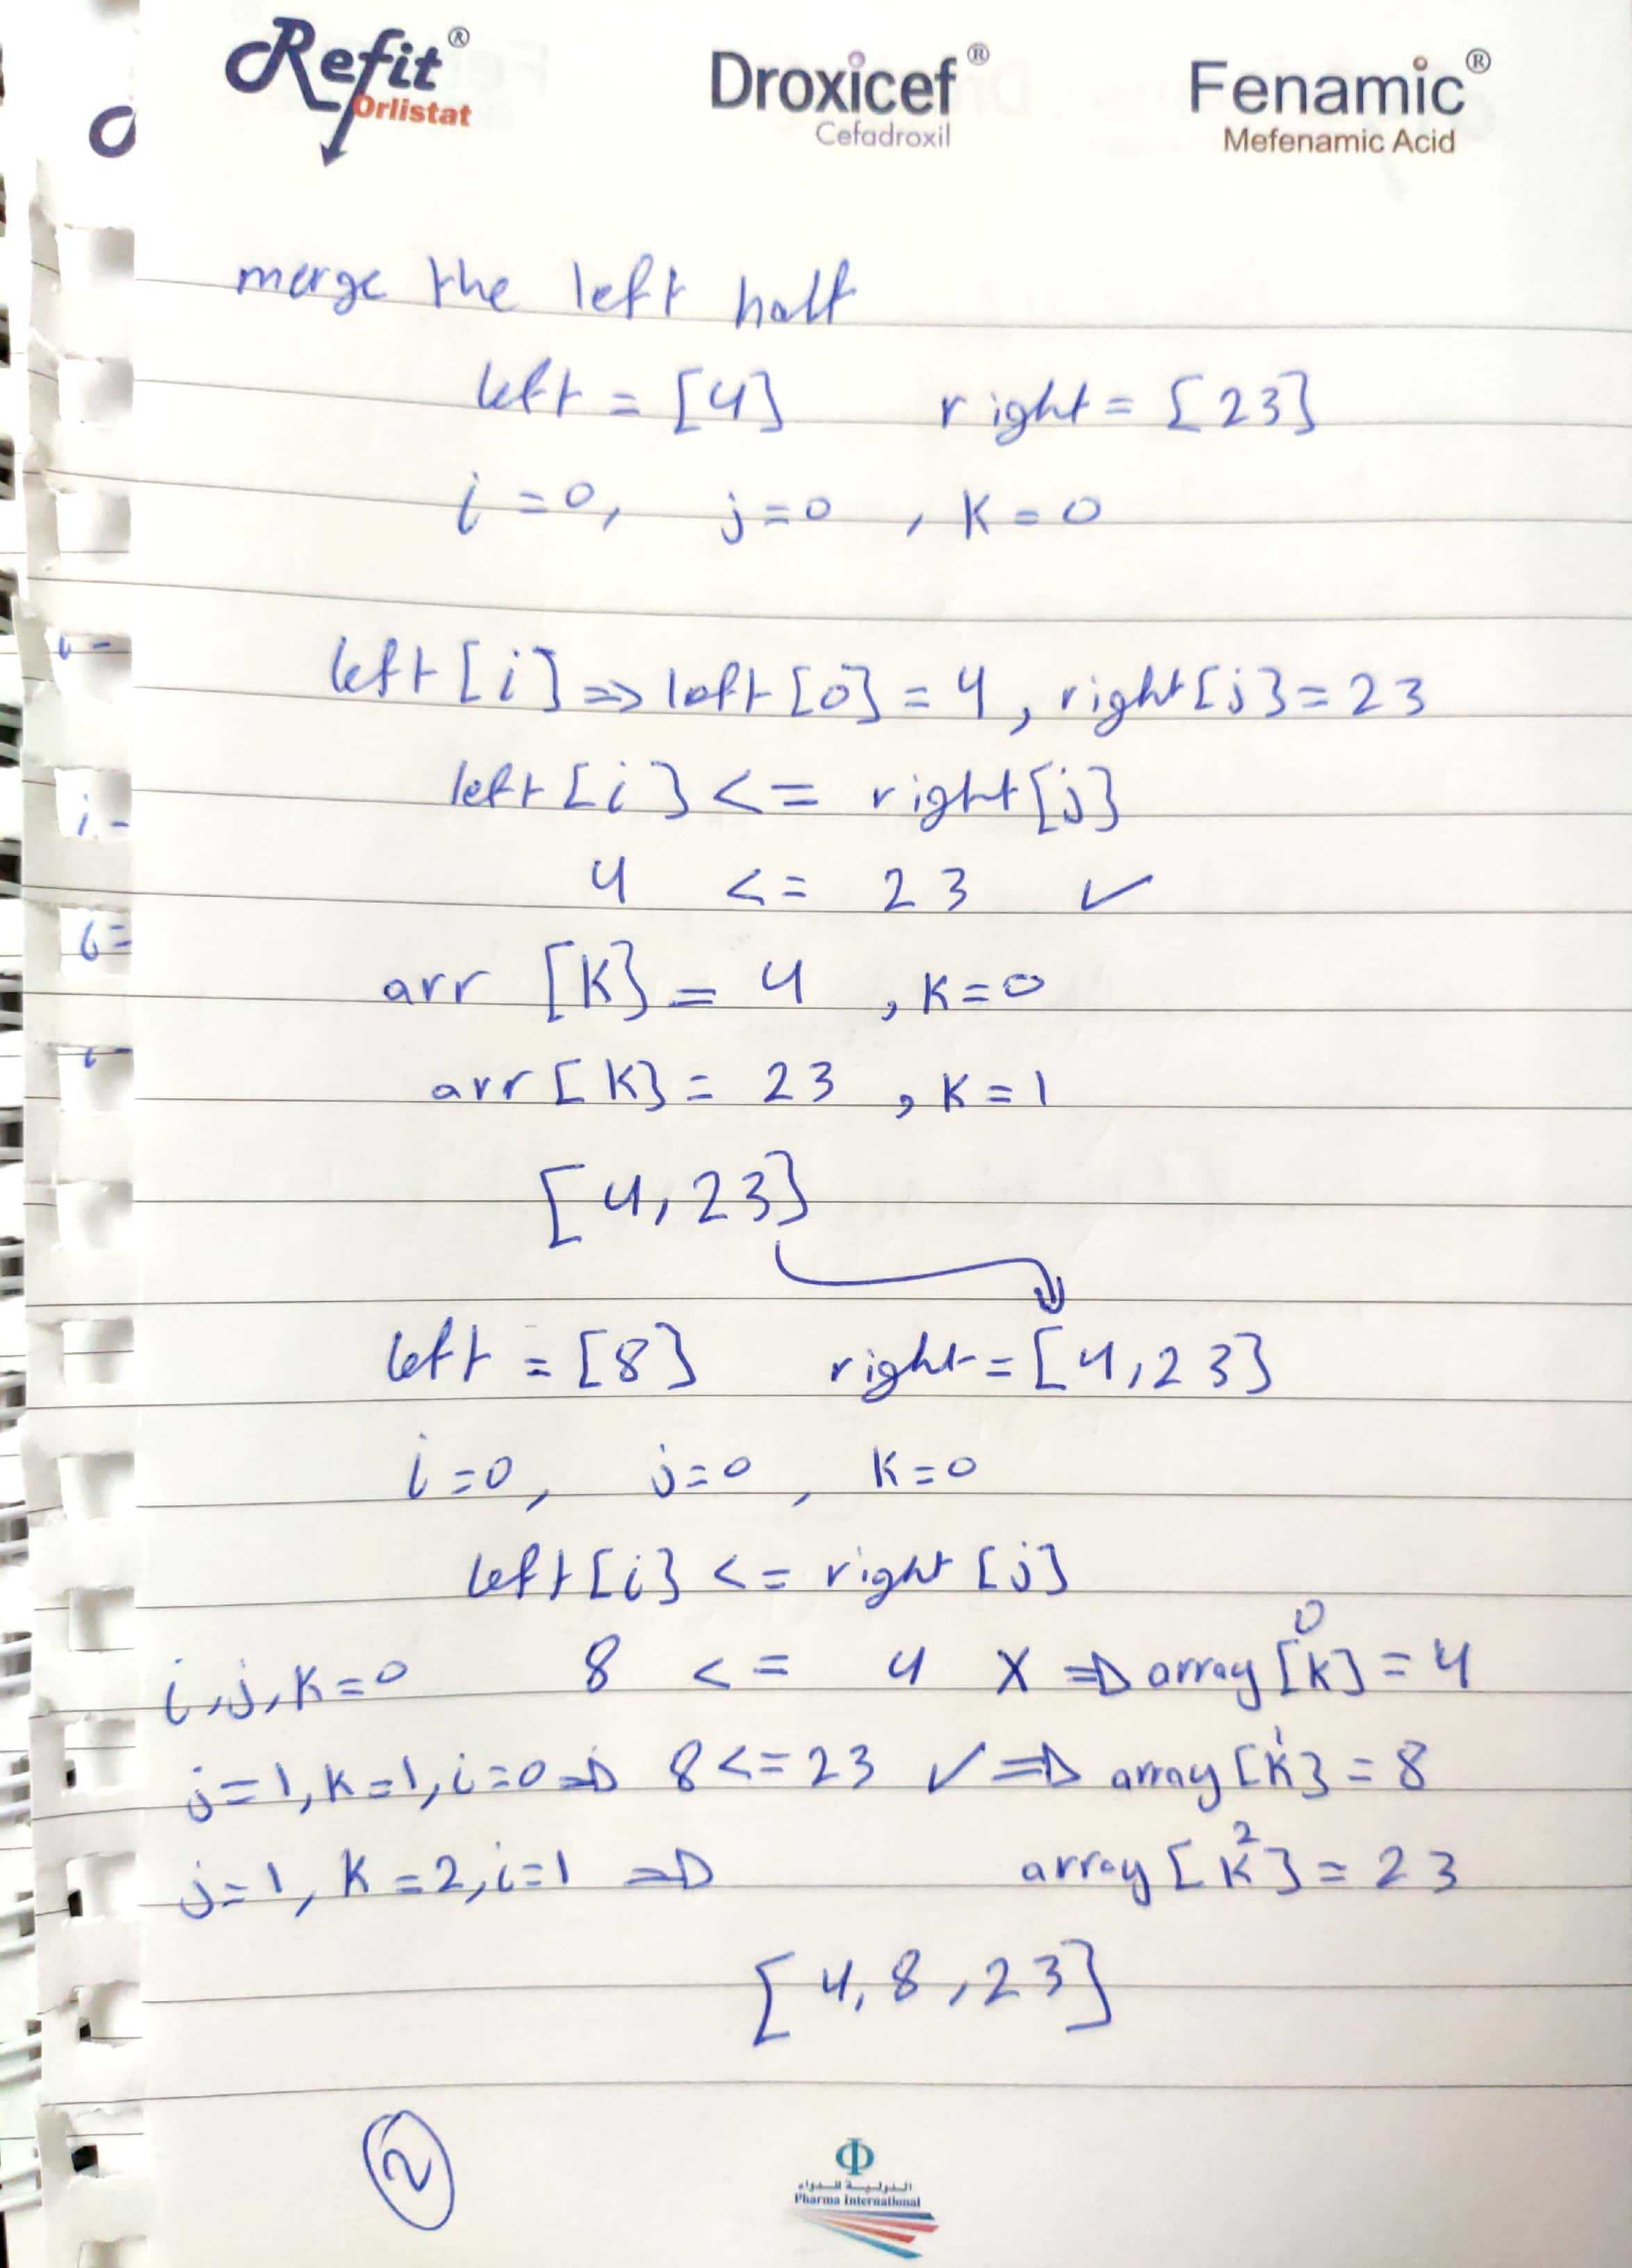 Refit® Droxicef® Fenamic®
Orlistat Cefadroxil Mefenamic Acid
merge the left half
left = [4] right = [23]
i=0, j=0 , K=0
left[i] => left[0] = 4, right[j] = 23
left[i] <= right[j]
4 <= 23 ✓
arr [K] = 4 , K=0
arr[K] = 23 , K=1
[4,23]
left = [8] right = [4,23]
i=0, j=0, K=0
left[i] <= right[j]
i,j,K=0 8 <= 4 X => array[K] = 4
0
j=1, K=1, i=0 => 8<=23 ✓ => array[K] = 8
1
j=1, K=2, i=1 => array[K] = 23
2
[4,8,23]
2
الدولية للدواء
Pharma International